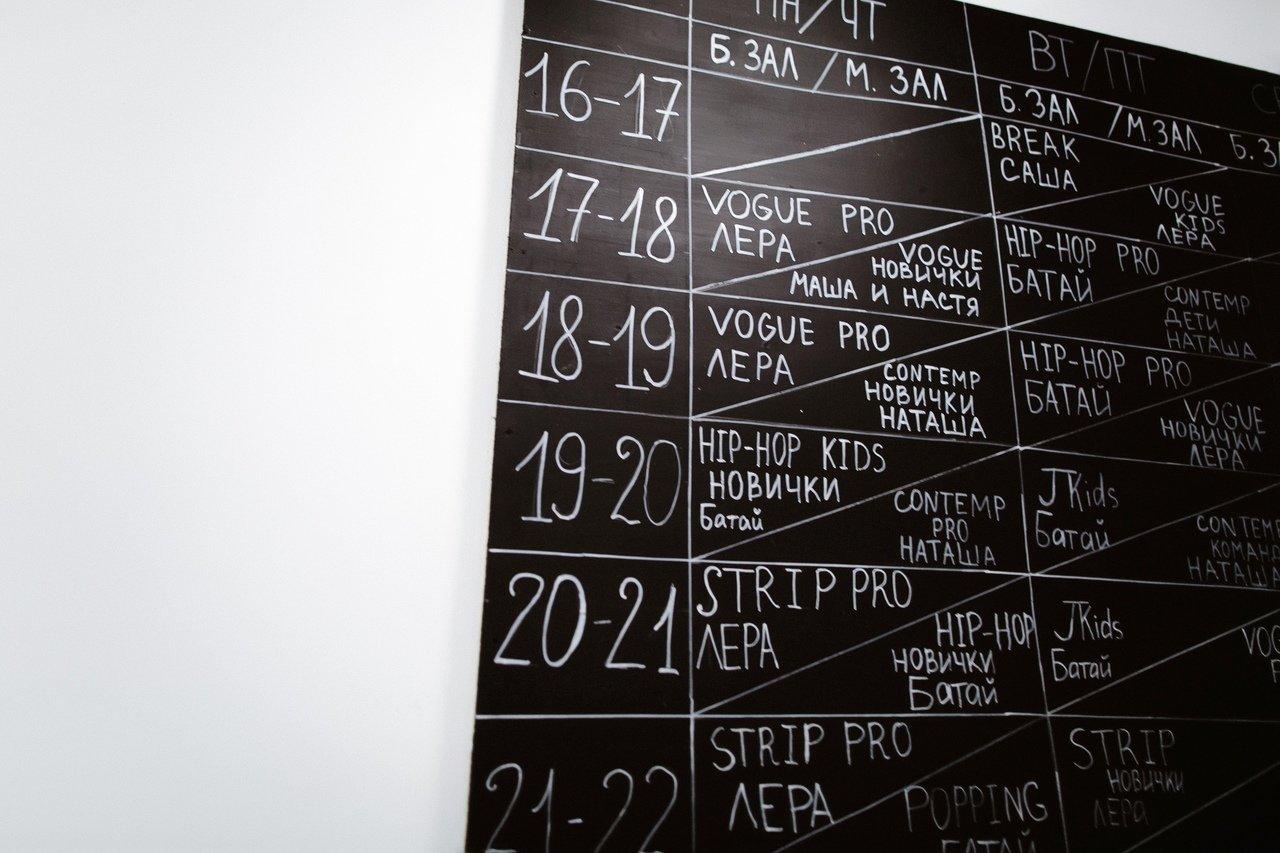 ПН/ЧТ
ВТ/ПТ
Б. ЗАЛ / М. ЗАЛ
Б. ЗАЛ / М. ЗАЛ
16-17
BREAK
САША
VOGUE
KIDS
ЛЕРА
17-18
VOGUE PRO
ЛЕРА
VOGUE
НОВИЧКИ
МАША И НАСТЯ
HIP-HOP PRO
БАТАЙ
CONTEMP
ДЕТИ
НАТАША
18-19
VOGUE PRO
ЛЕРА
CONTEMP
НОВИЧКИ
НАТАША
HIP-HOP PRO
БАТАЙ
VOGUE
НОВИЧКИ
ЛЕРА
19-20
HIP-HOP KIDS
НОВИЧКИ
Батай
CONTEMP
PRO
НАТАША
JKids
Батай
CONTEMP
НАТАША
20-21
STRIP PRO
ЛЕРА
HIP-HOP
НОВИЧКИ
Батай
JKids
Батай
21-22
STRIP PRO
ЛЕРА
POPPING
БАТАЙ
STRIP
НОВИЧКИ
ЛЕРА